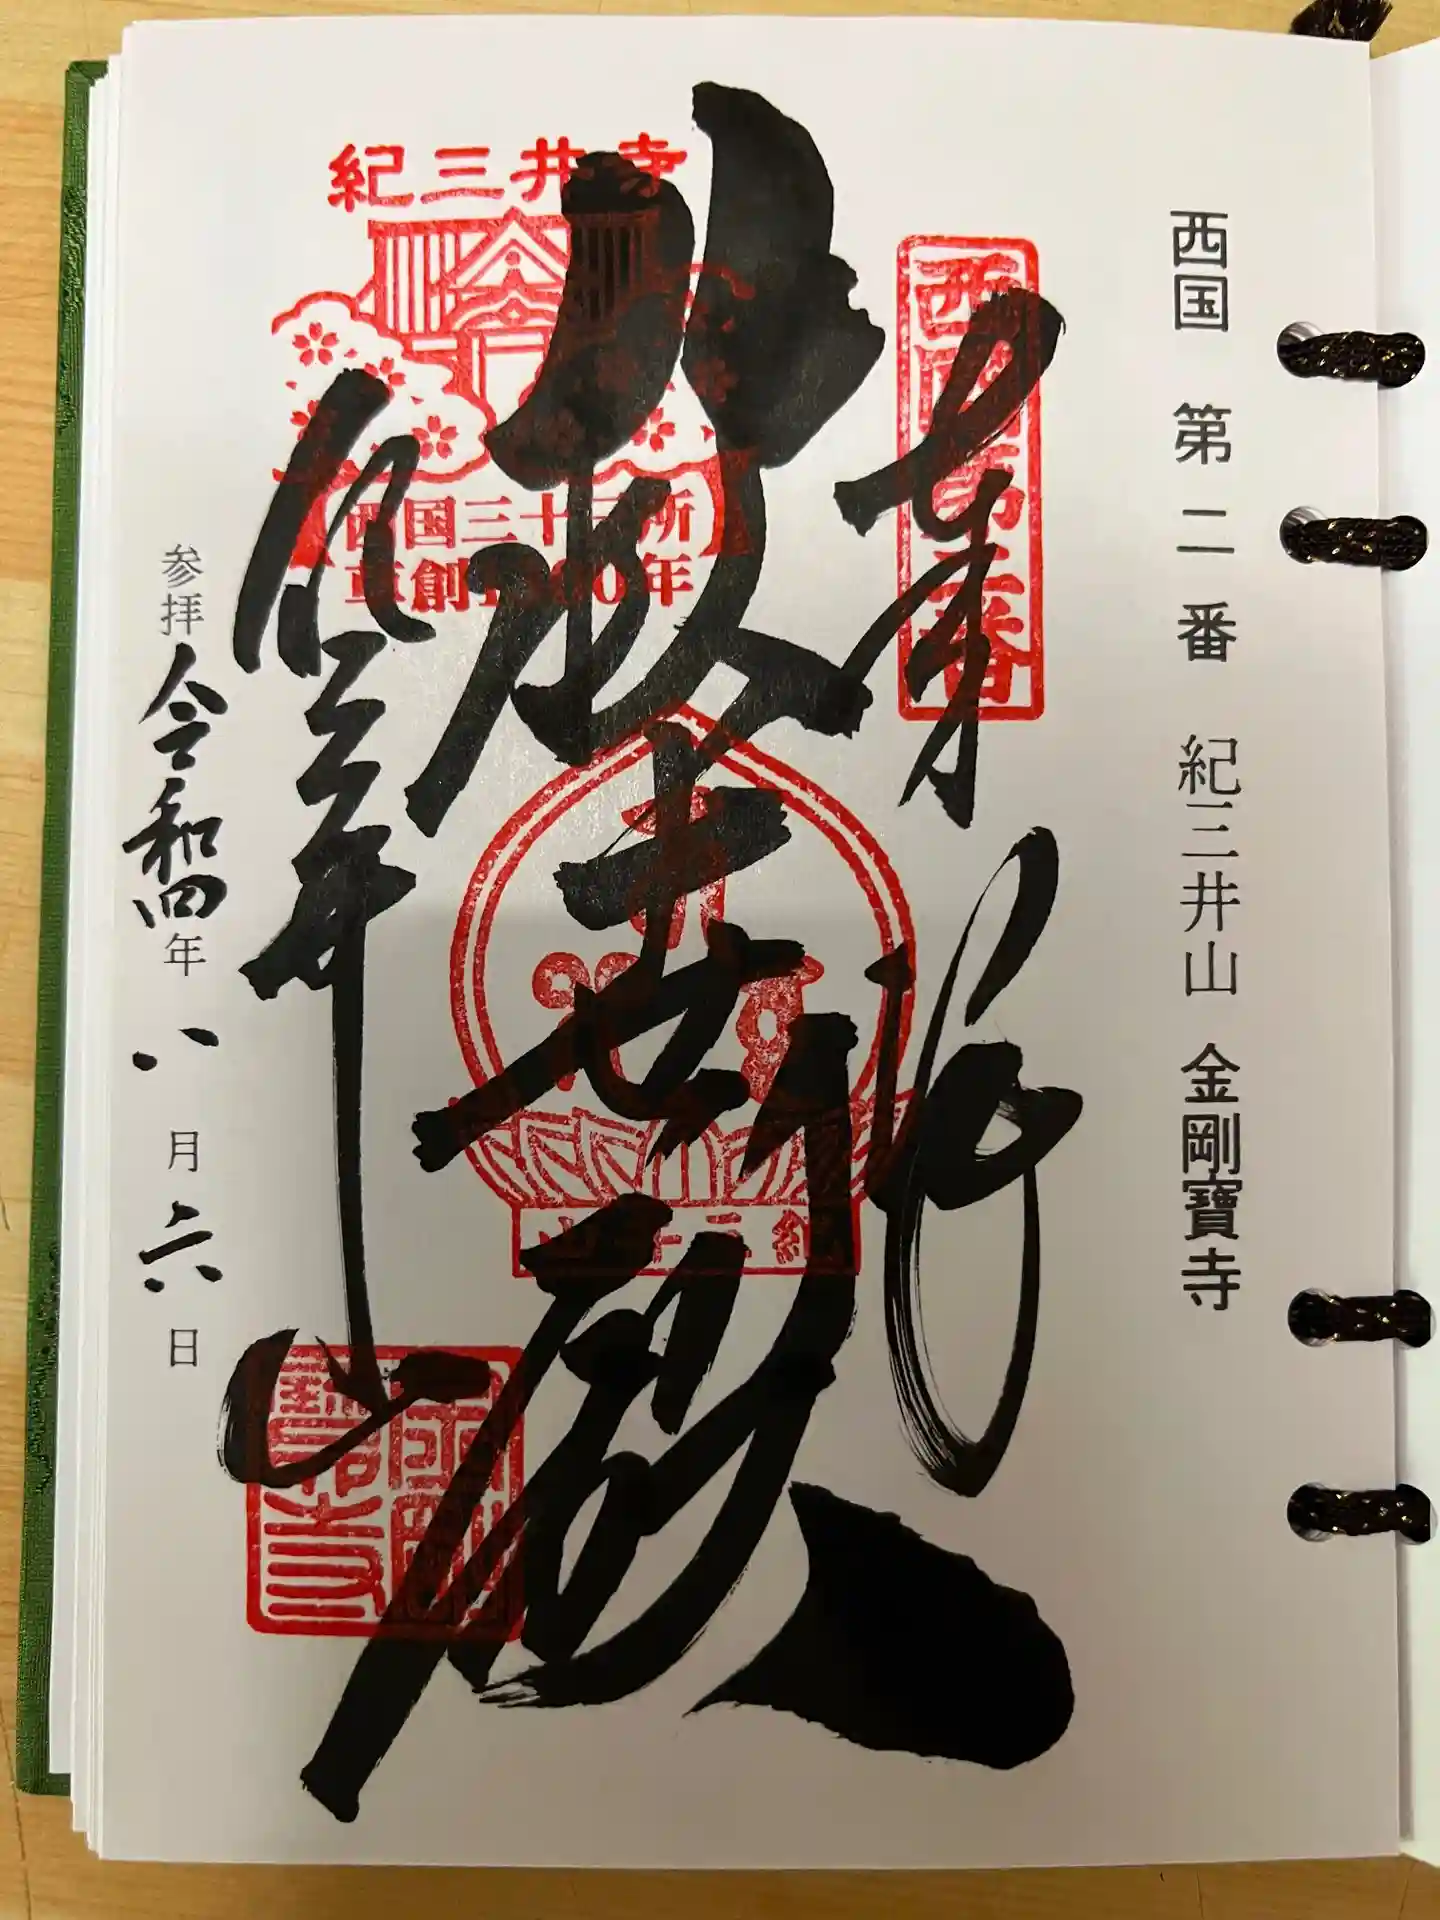 西国 第二番 紀三井山 金剛寶寺
西国第二番
奉拝
救世殿
紀三井寺
西国三十三所
草創1300年
紀三井山
紀三井寺
金剛寶寺
参拝 令和四年 八月 六日